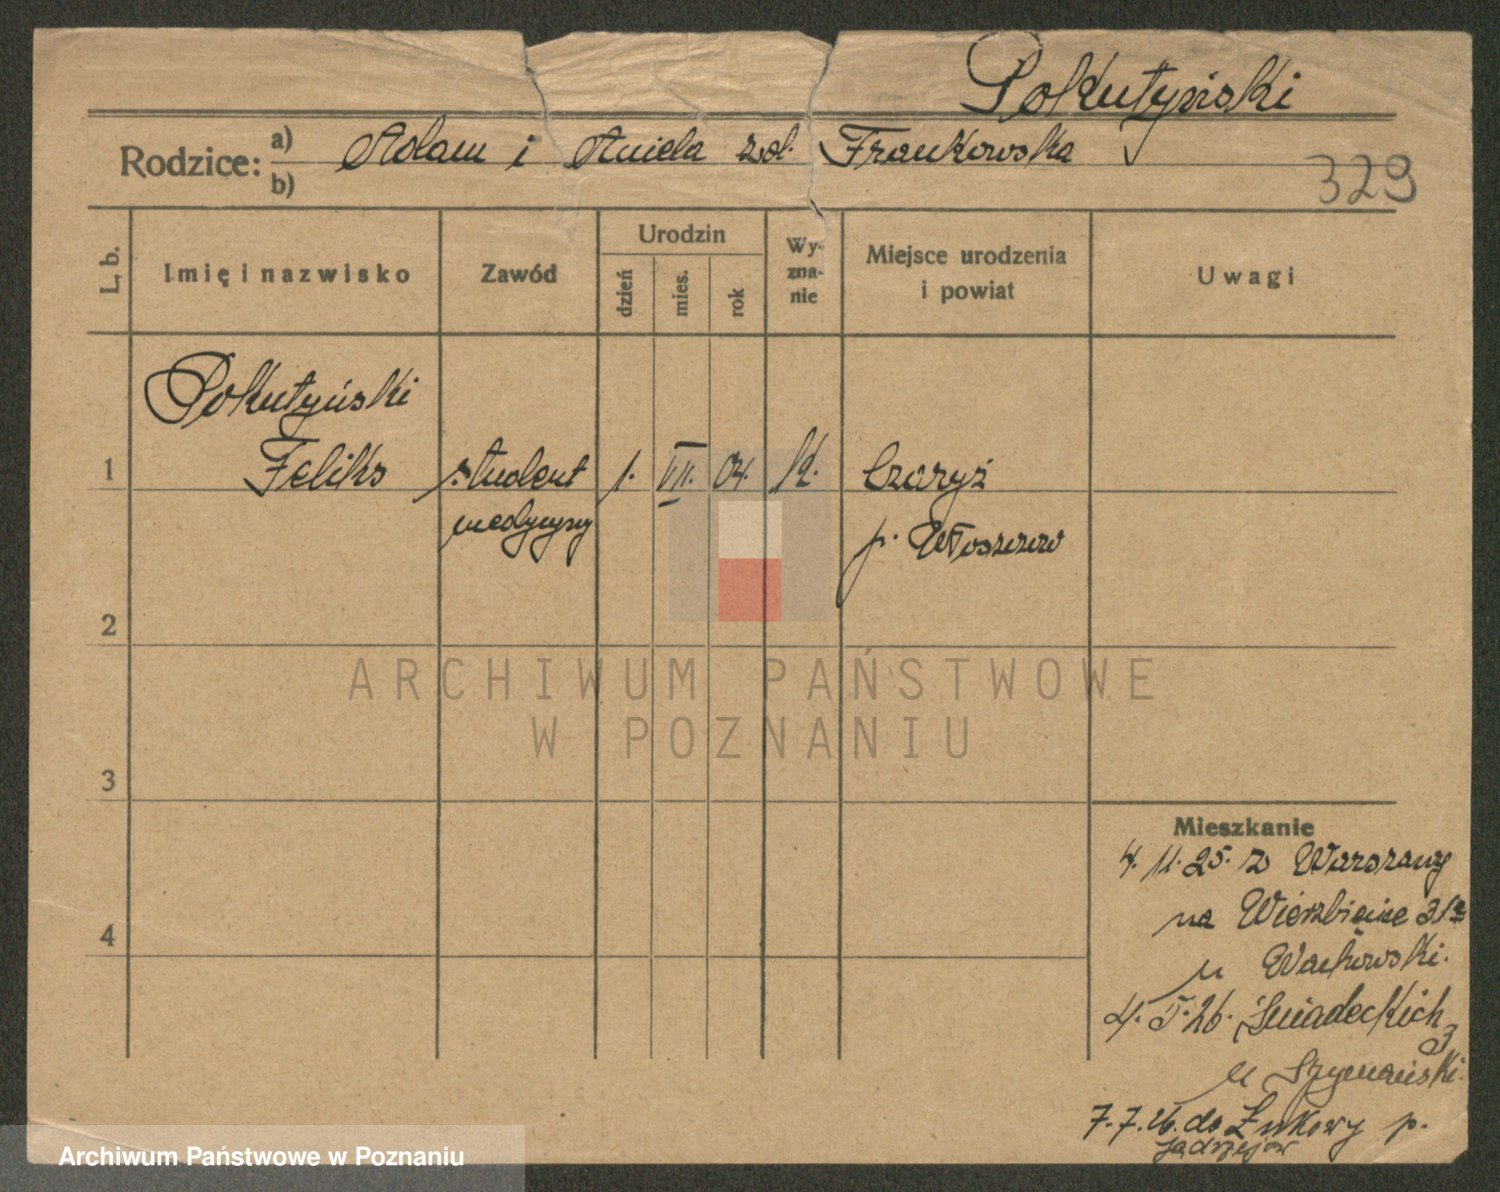 Pokutyński
Rodzice: a) Adam i Aniela zd. Frankowska
b)
329
L. b.
Imię i nazwisko
Zawód
Urodzin
dzień
mies.
rok
Wy-
zna-
nie
Miejsce urodzenia
i powiat
Uwagi
Pokutyński
1 Feliks student 1. VII. 04. rk. Czaryż
medycyny p. Włoszczow
2
3
4
ARCHIWUM PAŃSTWOWE
W POZNANIU
Mieszkanie
4. 11. 25. z Warszawy
na Wierzbięcice 31a
u
4. 5. 26. Śniadeckich
3
u Szymański.
7. 7. 26. do Łukowy p.
Jędrzejów
Archiwum Państwowe w Poznaniu